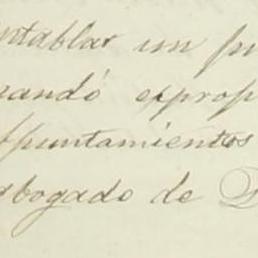 entablar un pu
mandó exprop
Apuntamientos
abogado de